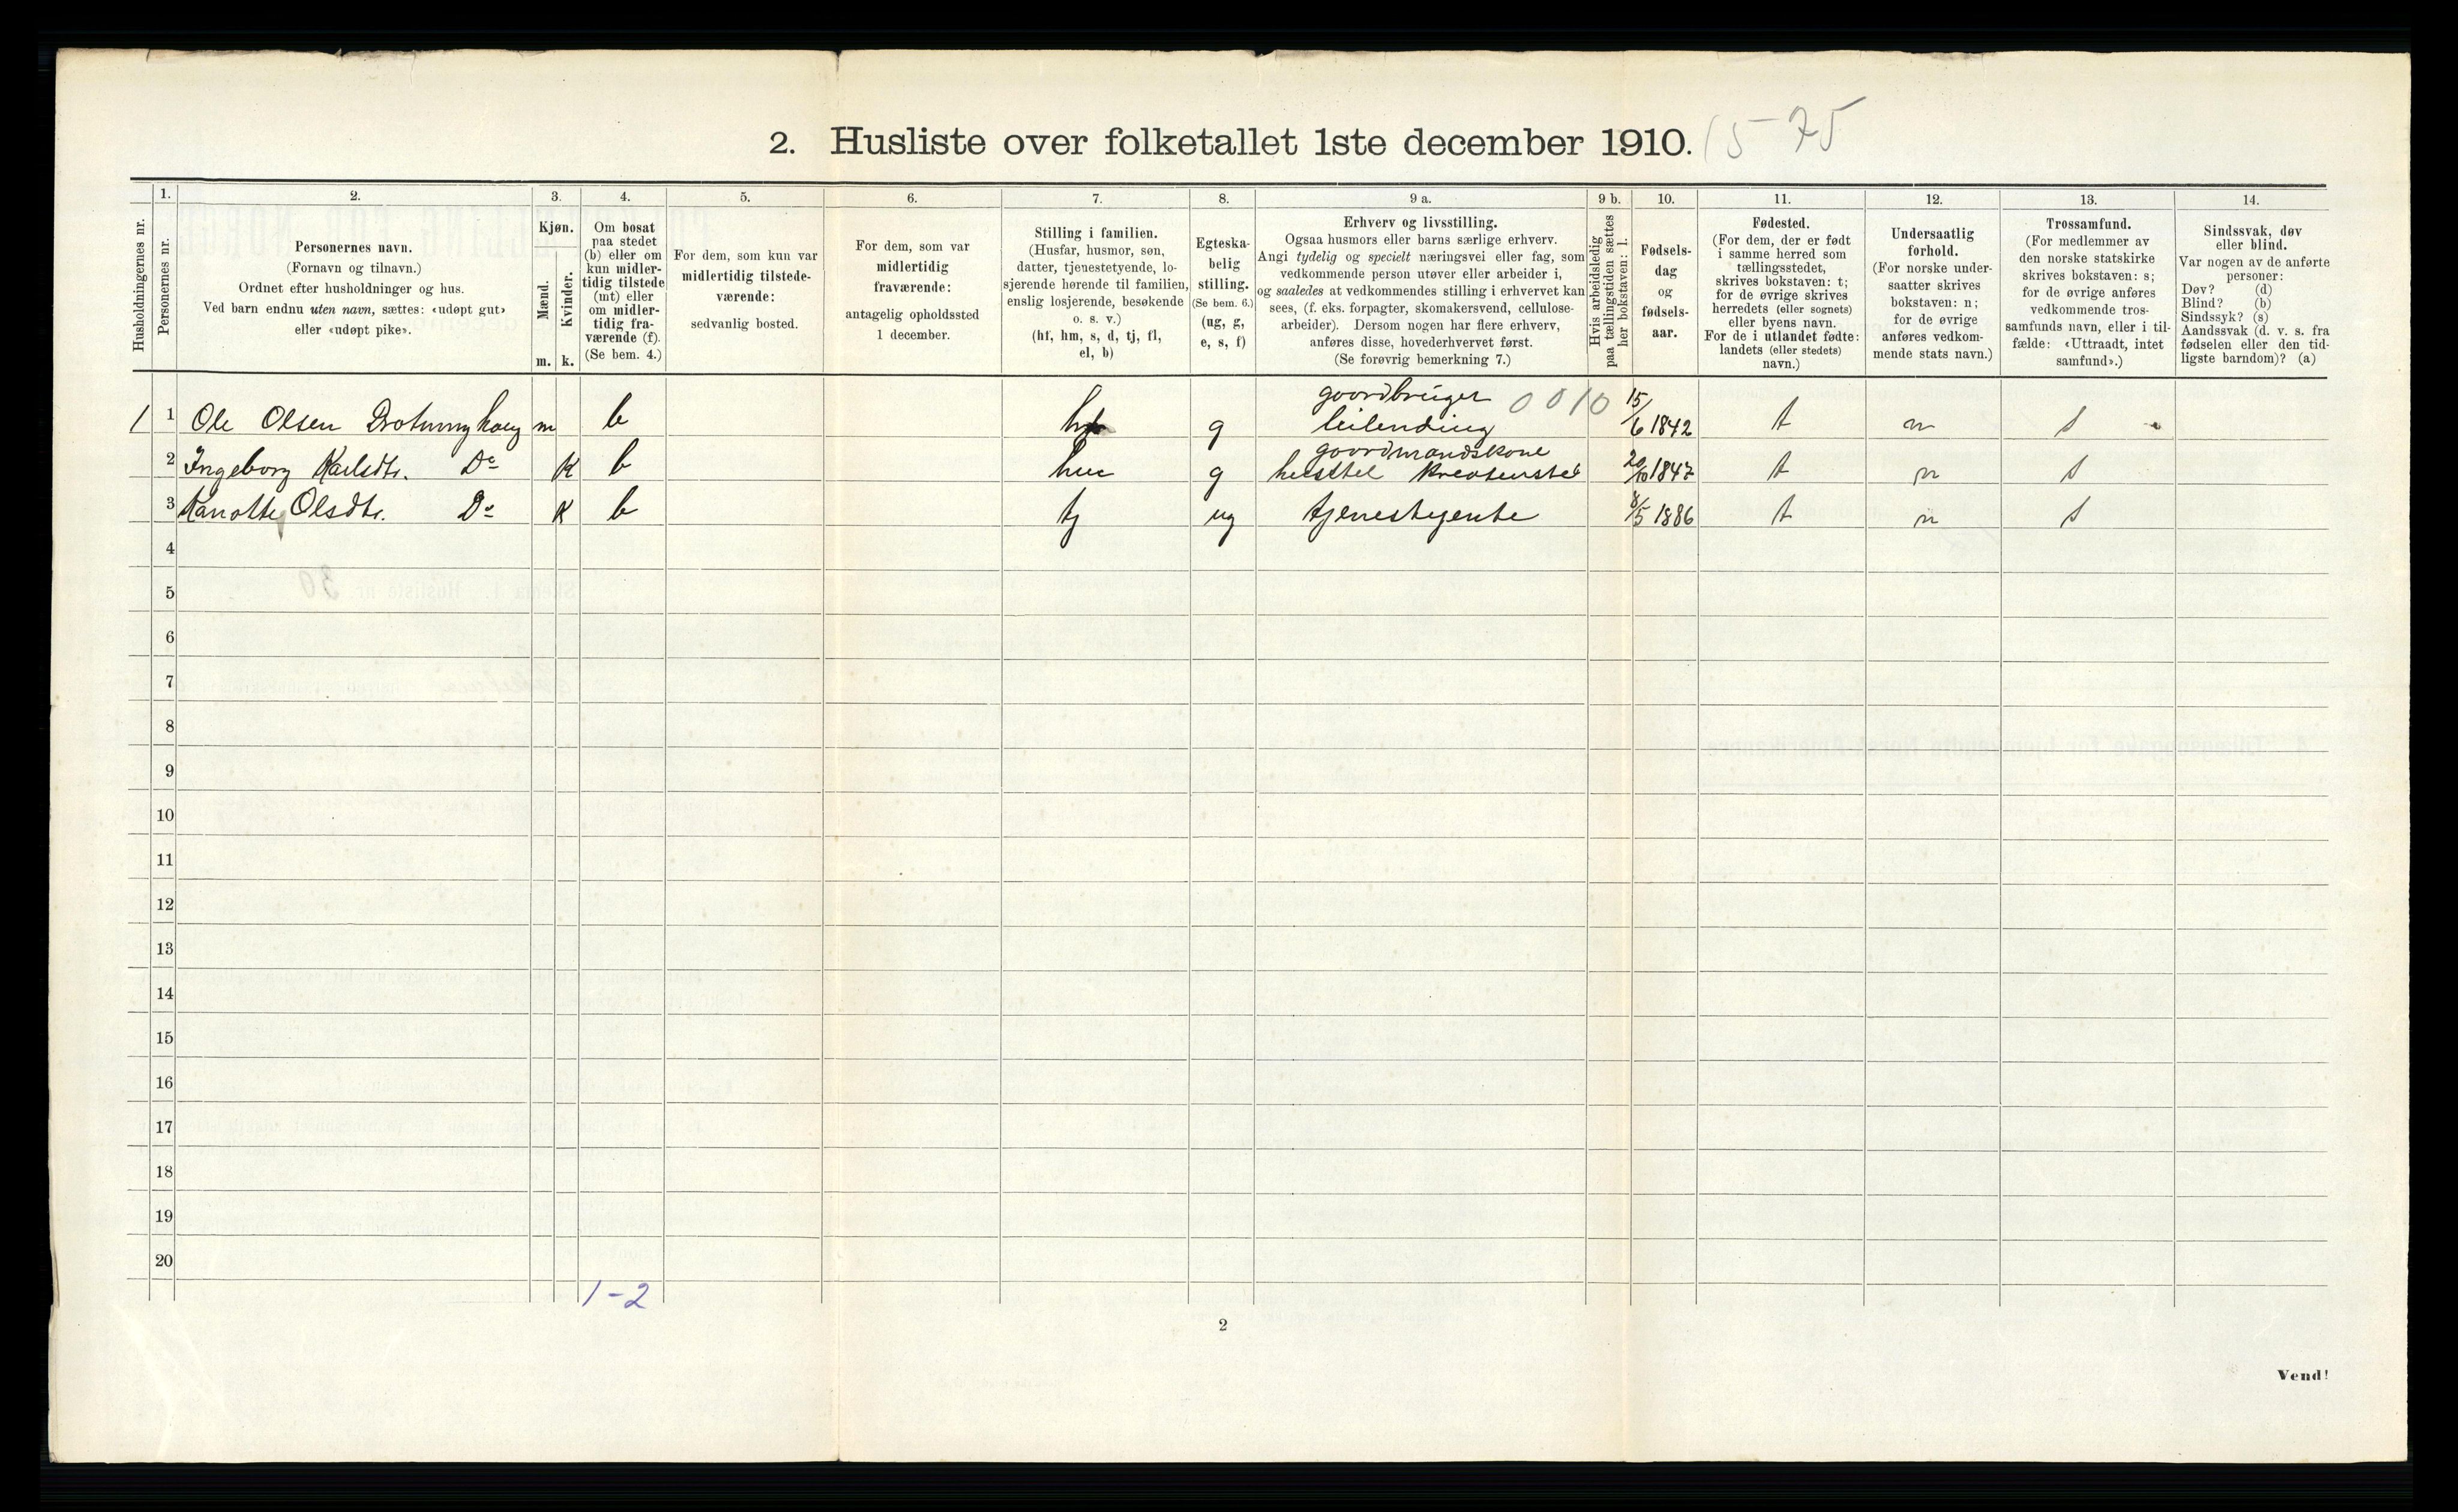 2. Husliste over folketallet 1ste december 1910. 15-75
Husholdningernes nr.
1.
Personernes nr.
2.
Personernes navn.
(Fornavn og tilnavn.)
Ordnet efter husholdninger og hus.
Ved barn endnu uten navn, sættes: «udøpt gut»
eller «udøpt pike».
3.
Kjøn.
Mænd.
Kvinder.
m. k.
4.
Om bosat
paa stedet
(b) eller om
kun midler-
tidig tilstede
(mt) eller
om midler-
tidig fra-
værende (f).
(Se bem. 4.)
5.
For dem, som kun var
midlertidig tilstede-
værende:
sedvanlig bosted.
6.
For dem, som var
midlertidig
fraværende:
antagelig opholdssted
1 december.
7.
Stilling i familien.
(Husfar, husmor, søn,
datter, tjenestetyende, lo-
sjerende hørende til familien,
enslig losjerende, besøkende
o. s. v.)
(hf, hm, s, d, tj, fl,
el, b)
8.
Egteska-
belig
stilling.
(Se bem. 6.)
(ug, g,
e, s, f)
9 a.
Erhverv og livsstilling.
Ogsaa husmors eller barns særlige erhverv.
Angi tydelig og specielt næringsvei eller fag, som
vedkommende person utøver eller arbeider i,
og saaledes at vedkommendes stilling i erhvervet kan
sees, (f. eks. forpagter, skomakersvend, cellulose-
arbeider). Dersom nogen har flere erhverv,
anføres disse, hovederhvervet først.
(Se forøvrig bemerkning 7.)
9 b.
Hvis arbeidsledig
paa tællingstiden sættes
her bokstaven: l.
10.
Fødsels-
dag
og
fødsels-
aar.
11.
Fødested.
(For dem, der er født
i samme herred som
tællingsstedet,
skrives bokstaven: t;
for de øvrige skrives
herredets (eller sognets)
eller byens navn.
For de i utlandet fødte:
landets (eller stedets)
navn.)
12.
Undersaatlig
forhold.
(For norske under-
saatter skrives
bokstaven: n;
for de øvrige
anføres vedkom-
mende stats navn.)
13.
Trossamfund.
(For medlemmer av
den norske statskirke
skrives bokstaven: s;
for de øvrige anføres
vedkommende tros-
samfunds navn, eller i til-
fælde: «Uttraadt, intet
samfund».)
14.
Sindssvak, døv
eller blind.
Var nogen av de anførte
personer:
Døv? (d)
Blind? (b)
Sindssyk? (s)
Aandssvak (d. v. s. fra
fødselen eller den tid-
ligste barndom)? (a)
goordbruger 0010
1 1 Ole Olsen Drotninghaug m b hf g leilending 15/6 1842 t n s
goordmandskone
2 Ingeborg Karlsdtr. Do K b hm g husstel kreaturstel 20/10 1847 t n s
3 Olsdtr. Do K b tj ug tjenestejente 8/5 1886 t n s
4
5
6
7
8
9
10
11
12
13
14
15
16
17
18
19
20
1-2
2
Vend!